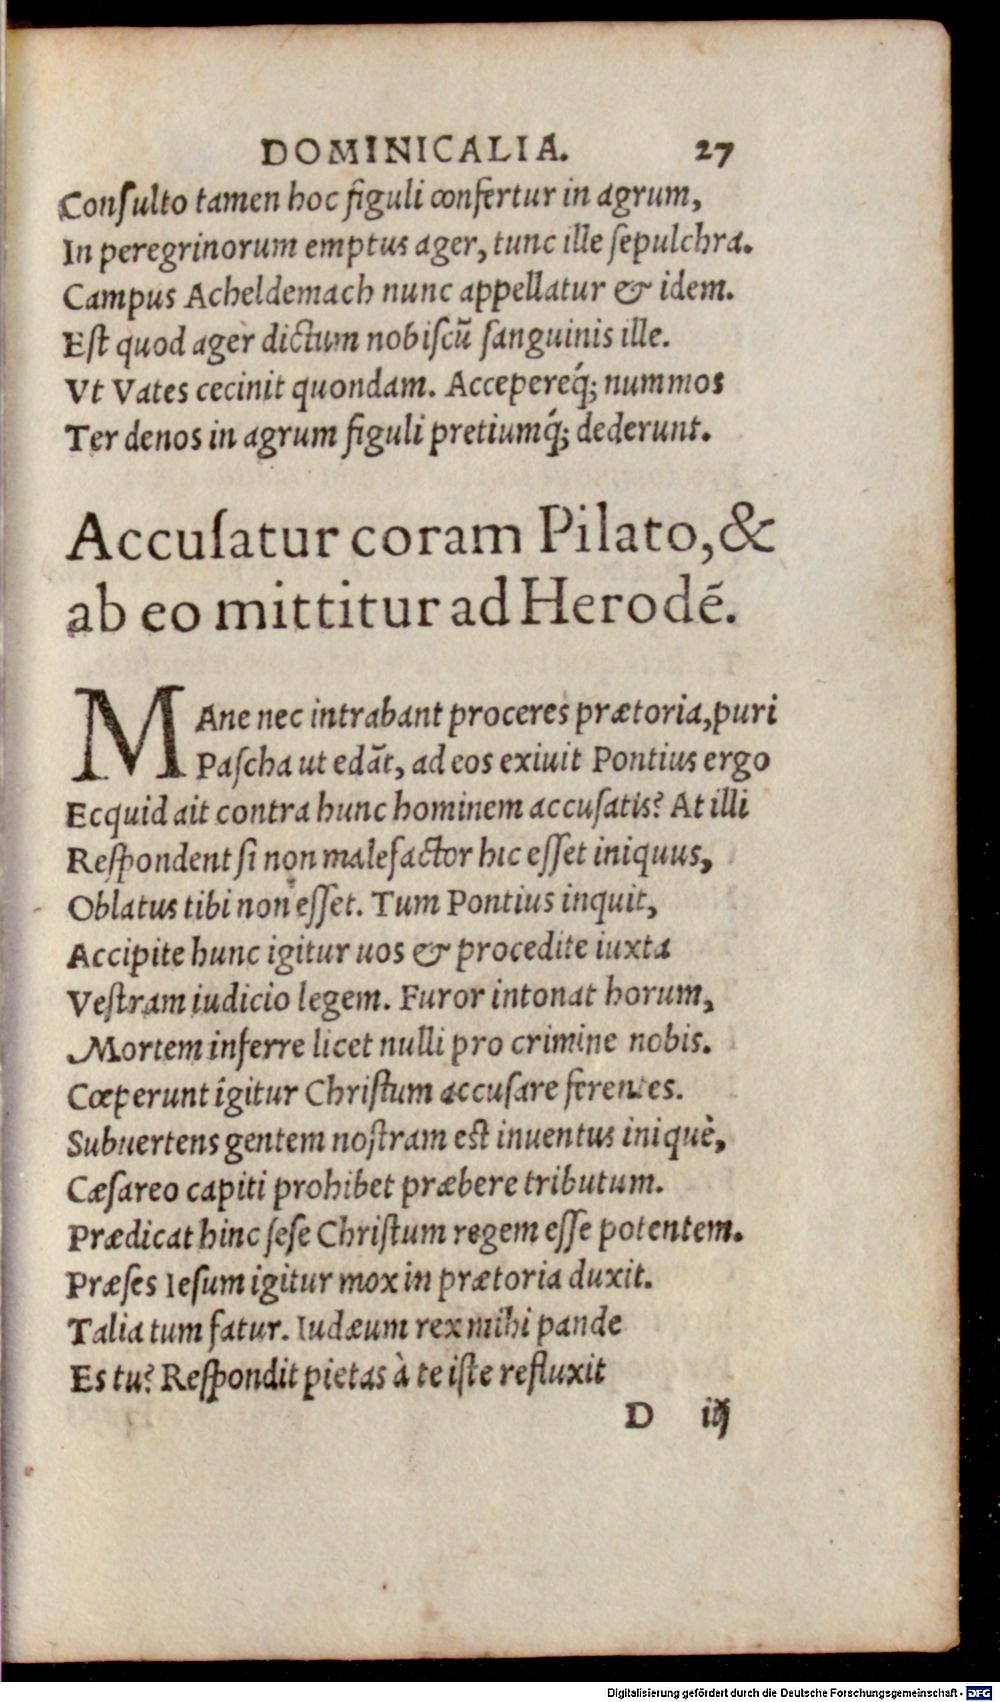 DOMINICALIA. 27
Conſulto tamen hoc figuli confertur in agrum,
In peregrinorum emptus ager, tunc ille ſepulchra.
Campus Acheldemach nunc appellatur & idem.
Eſt quod ager dictum nobiſcũ ſanguinis ille.
Vt Vates cecinit quondam. Accepereq́; nummos
Ter denos in agrum figuli pretiumq́; dederunt.
Accuſatur coram Pilato, &
ab eo mittitur ad Herodē.
MAne nec intrabant proceres prætoria, puri
Paſcha ut edāt, ad eos exiuit Pontius ergo
Ecquid ait contra hunc hominem accuſatis? At illi
Reſpondent ſi non malefactor hic eſſet iniquus,
Oblatus tibi non eſſet. Tum Pontius inquit,
Accipite hunc igitur uos & procedite iuxta
Veſtram iudicio legem. Furor intonat horum,
Mortem inferre licet nulli pro crimine nobis.
Cœperunt igitur Chriſtum accuſare ferentes.
Subuertens gentem noſtram eſt inuentus iniquè,
Cæſareo capiti prohibet præbere tributum.
Prædicat hinc ſeſe Chriſtum regem eſſe potentem.
Præſes Ieſum igitur mox in prætoria duxit.
Talia tum fatur. Iudæum rex mihi pande
Es tu? Reſpondit pietas à te iſte refluxit
D iij
Digitalisierung gefördert durch die Deutsche Forschungsgemeinschaft - DFG